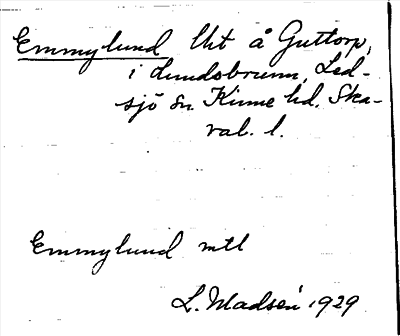 Emmylund Ut å Guttorp,
i Lundsbrunn, Led-
sjö sn. Kinne hd. Ska-
rab. l.
Emmylund mtl
L. Madsén 1929